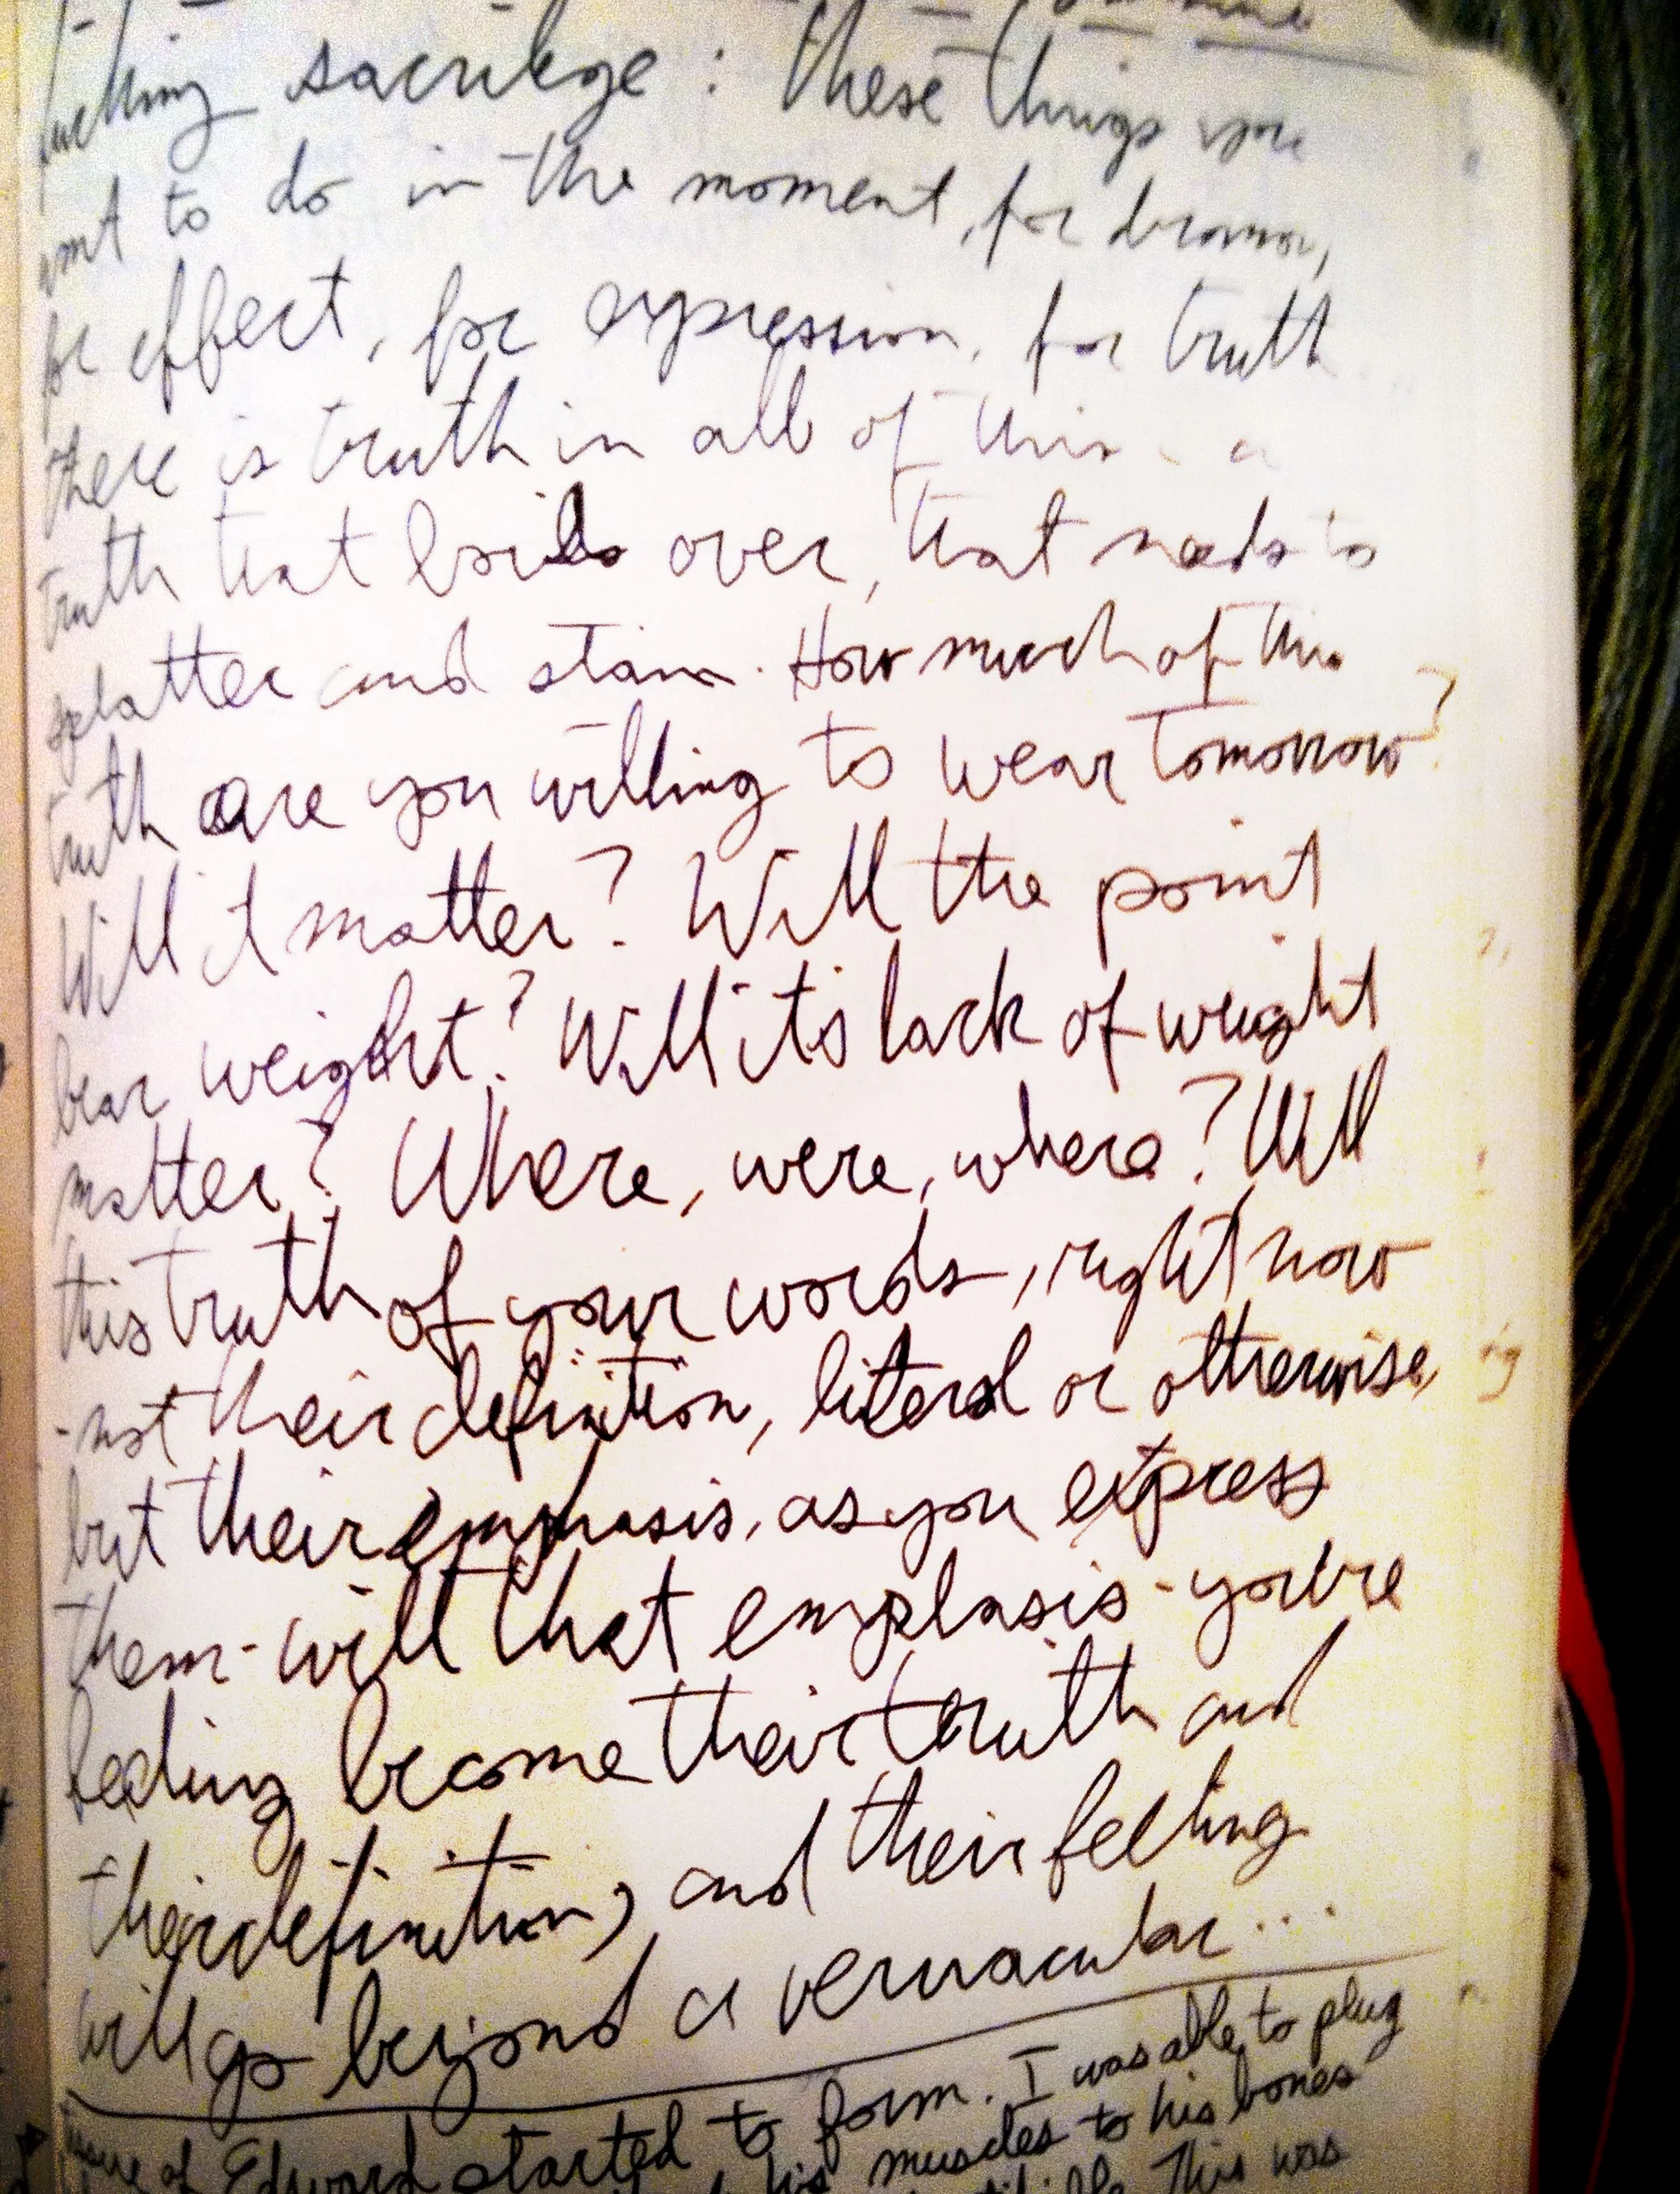 fucking sacrilege: these things you
want to do in the moment, for drama,
for effect, for expression, for truth
there is truth in all of this - a
truth that boils over, that needs to
splatter and stain. How much of this
truth are you willing to wear tomorrow?
Will it matter? Will the point
bear weight? Will its lack of weight
matter? Where, were, where? Will
this truth of your words, right now
-not their definition, literal or otherwise,
but their emphasis, as you express
them- will that emphasis - you're
feeling become their truth and
their definition, and their feeling
will go beyond a vernacular...
of Edward started to form. I was able to plug
his muscles to his bones
This was